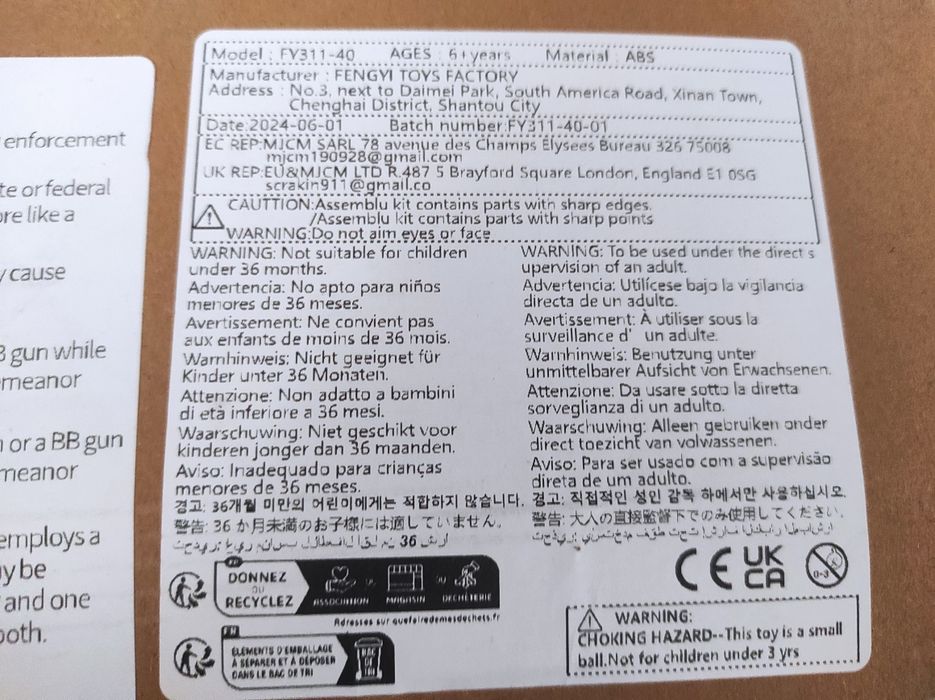 enforcement
te or federal
ore like a
y cause
B gun while
meanor
n or a BB gun
meanor
employs a
ay be
and one
ooth.
Model : FY311-40 AGES : 6+years Material : ABS
Manufacturer : FENGYI TOYS FACTORY
Address : No.3, next to Daimei Park, South America Road, Xinan Town,
Chenghai District, Shantou City
Date:2024-06-01 Batch number:FY311-40-01
EC REP:MJCM SARL 78 avenue des Champs Elysees Bureau 326 75008
mjcm190928@gmail.com
UK REP:EU&MJCM LTD R.487 5 Brayford Square London, England E1 0SG
scrakin911@gmail.co
CAUTION:Assemblu kit contains parts with sharp edges.
/Assemblu kit contains parts with sharp points
WARNING:Do not aim eyes or face
WARNING: Not suitable for children
under 36 months.
Advertencia: No apto para niños
menores de 36 meses.
Avertissement: Ne convient pas
aux enfants de moins de 36 mois.
Warnhinweis: Nicht geeignet für
Kinder unter 36 Monaten.
Attenzione: Non adatto a bambini
di età inferiore a 36 mesi.
Waarschuwing: Niet geschikt voor
kinderen jonger dan 36 maanden.
Aviso: Inadequado para crianças
menores de 36 meses.
경고: 36개월 미만의 어린이에게는 적합하지 않습니다.
警告: 36 か月未満のお子様には適していません。
36
WARNING: To be used under the direct s
upervision of an adult.
Advertencia: Utilícese bajo la vigilancia
directa de un adulto.
Avertissement: À utiliser sous la
surveillance d' un adulte.
Warnhinweis: Benutzung unter
unmittelbarer Aufsicht von Erwachsenen.
Attenzione: Da usare sotto la diretta
sorveglianza di un adulto.
Waarschuwing: Alleen gebruiken onder
direct toezicht van volwassenen.
Aviso: Para ser usado com a supervisão
direta de um adulto.
경고: 직접적인 성인 감독 하에서만 사용하십시오.
警告: 大人の直接監督下でのみ使用してください。
FR
DONNEZ
OU
RECYCLEZ
ASSOCIATION OU MAGASIN OU DÉCHÈTERIE
Adresses sur quefairedemesdechets.fr
FR
ÉLÉMENTS D'EMBALLAGE
À SÉPARER ET À DÉPOSER
DANS LE BAC DE TRI
BAC
DE
TRI
CE
UK
CA
0-3
WARNING:
CHOKING HAZARD--This toy is a small
ball.Not for children under 3 yrs